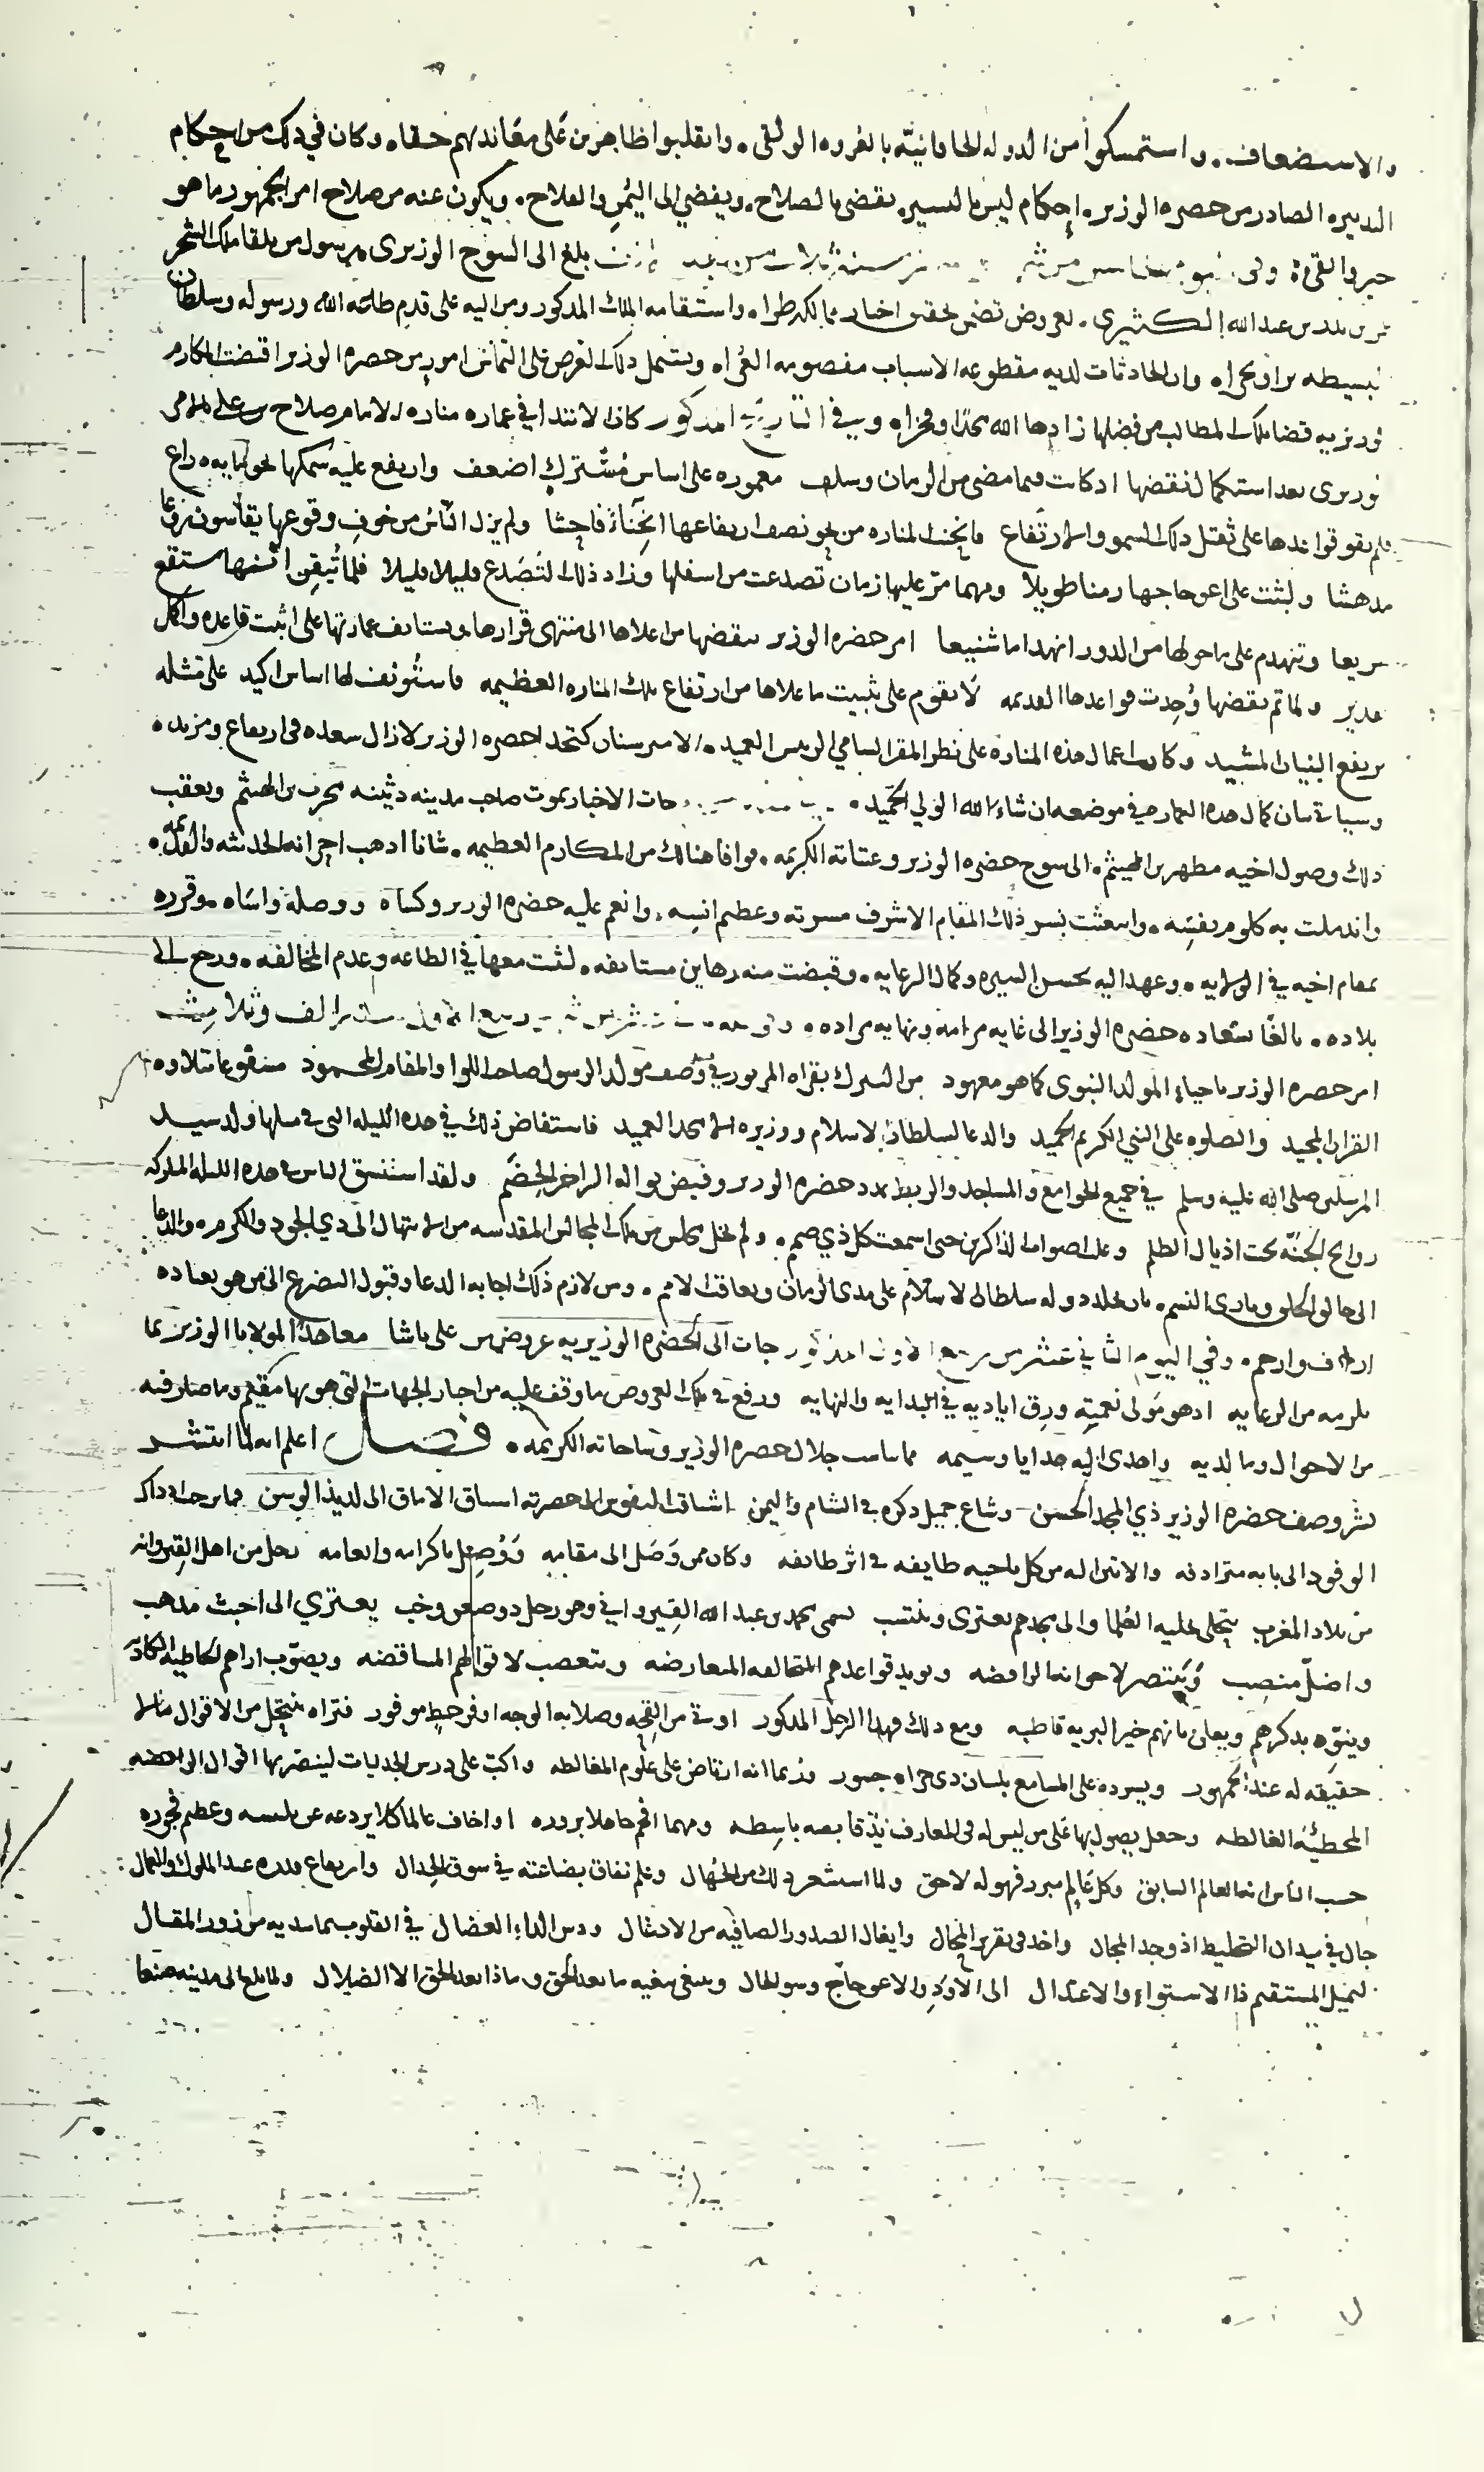 والاستضعاف. واستمسكوا من الدوله الخاقانيّه بالعروه الوثقى. وانقلبوا ظاهرين على معاندهم حقا. وكان في ذلك من احكام
التدبير الصادر من حصره الوزير. إحكام ليس باليسير. يقضى بالصلاح. ويفضي الى اليُمن والفلاح. ويكون عنه من صلاح امر الجمهور ما هو
خير وابقى وفي بلغ الى السوح الوزيرى رسول من تلقا ملك الشحر
بدر بن عبد الله الكثيرى. بعروض تضمن تحقيق اخبار ممالكه طرا. واستقامه الملك المذكور ومن اليه على قدم طاعه الله ورسوله وسلطان
بسيطه برا وبحرا. وان الحادثات لديه مقطوعه الاسباب مفصومه العُرا. ويشمل ذلك العرض على التماس امور من حصره الوزير اقتضت المكارم
الوزيريه قضا تلك المطالب من فضلها زادها الله مجدا وفخرا. وفي التاريخ المذكور كان الابتدا في عماره مناره الامام صلاح بن على
بعد استكمال نقضها اد كانت فيما مضى من الزمان وسلف معموره على اساس مُشترك اضعف وارتفع عليه سمكها نحو مايه دراع
فلم يقو قواعدها على ثقل ذلك السمو والارتفاع فانحنت المناره من نحو نصف ارتفاعها انحناءً فاحشا ولم يزل الناس من خوف وقوعها يقاسون روعا
مدهشا ولبثت على اعوجاجها زمنا طويلا ومهما مرّ عليها زمان تصدعت من اسفلها وزاد ذلك التصدع قليلا قليلا فلما تُيقن انها ستقع
سريعا وتنهدم على ما حولها من الدور انهداما شنيعا امر حضره الوزير بنقضها من اعلاها الى منتهى قرارها. ويستانف عمارتها على اثبت قاعده واكمل
تدبير ولما تم نقضها وُجدت قواعدها القديمه لا تقوم على تثبيت ما علاها من ارتفاع تلك المناره العظيمه فاستُونف لها اساس اكيد على مثله
يرفع البنيان المشيد وكان اعمال هذه المناره على نظر المقر السامي الرئيس العميد. الامير سنان كتخدا حصره الوزير لا زال سعده في ارتفاع ومزيد.
وسياتي بيان كمال هذه العماره في موضعه ان شاء الله الولي الحميد. جات الاخبار بموت صاحب مدينه دثينه بن الهيثم وبعقب
ذلك وصول اخيه مطهر بن الهيثم. الى سوح حضره الوزير وعتباته الكريمه. فوافا هنالك من المكارم العظيمه. شانا ادهب احزانه الحديثه والقديمه.
واندملت به كلوم نفسه. وانبعثت بسر ذلك المقام الاشرف مسرته وعظم انسه. وانعم عليه حضره الوزير وكساه ووصله واساه. وقرره
بمقام اخيه في الولايه. وعهد اليه بحسن السيره وكمال الرعايه. وقبضت منه رهاين مستانفه. لبث معها في الطاعه وعدم المخالفه. ورجع الى
بلاده. بالغا بسعاده حضره الوزير الى غايه مرامه ونهايه مراده. ربيع الاول الف وثلاثين
امر حصره الوزير باحياء المولد النبوى كما هو معهود من التبرك بقراه المزبور في وصف مولد الرسول صاحب اللوا والمقام المحمود مشفوعا بتلاوه
القران المجيد والصلوه على النبي الكريم الحميد والدعا لسلطان الاسلام ووزيره الامجد العميد فاستفاض ذلك في هذه الليله التي في مثلها ولد سيد
المرسلين صلى الله عليه وسلم في جميع الجوامع والمساجد والربط بمدد حضره الوزير وفيض نواله الزاخر الخضم ولقد استنشق الناس في هذه الليله المباركه
روايح الجنّه تحت اذيال الظلم وعلت اصوات الذاكرين حتى اسمعت كل ذي صمم. ولم تخل مجلس من تلك المجالس المقدسه من الابتهال الى ذي الجود والكرم. والدعا
الى خالق الخلق وبارى النسم. بان يخلد دوله سلطان الاسلام على مدى الزمان وتعاقب الامم. ومن لازم ذلك اجابه الدعا وقبول التضرع الى من هو بعباده
اراف وارحم. وفي اليوم الثاني عشر من ربيع الاول المذكور جات الى الحضره الوزيريه عروض من على باشا معاهدا لمولانا الوزير بما
يلزمه من الرعايه ادهو مولى نعمته ورق اياديه في البدايه والنهايه ورفع في تلك العروض ما وقف عليه من اخبار الجهات التي هو بها مقيم وما صار فيه
من الاحوال وما لديه واهدى اليه هدايا وسيمه مما يناسب جلال حصره الوزير وساحاته الكريمه. فصل اعلم انه لما انتشر
نشر وصف حضره الوزير ذي المجد الحسن وشاع جميل ذكره في الشام واليمن اشتاقت النفوس الى حصرته اشتياق الاماق الى لذيذ الوسن فما برحت اذ ذاك
الوفود الى بابه مترادفه والاتيان له من كل ناحيه طايفه في اثر طايفه وكان ممن وصل الى مقامه ووُصل باكرامه وانعامه رجل من اهل القيروان
من بلاد المغرب يتحلى بحليه العُلما والى مجدهم يعتزى وينتسب يسمى محمد بن عبد الله القيرواني وهو رجل دو صغن وخب يعتزي الى اخبث مذهب
واضلّ منصب وينتصر لاخوانه الرافضه ويويد قواعدهم المتخالفه المتعارضه ويتعصب لاقوالهم المتناقضه ويصوّب اراهم الخاطيه الكاذبه
وينوّه بذكرهم ويعلن بانهم خير البريه قاطبه ومع ذلك فهذا الرجل المذكور اوتي من القحه وصلابه الوجه اوفر حظ موفور فتراه ينتحل من الاقوال ما لا
حقيقه له عند الجمهور ويسرده على المسامع بلسان ذى جراه جسور وربما انه ارتاض على علوم المغالطه واكب على درس الجدليات لينصر بها اقوال الرافضه
المخطيّه الغالطه وجعل يصول بها على من ليس له في المعارف يدٌ قابضه باسطه ومهما افحم جاهلا بروده او اخاف عالما كلا يردعه عن تلبيسه وعظيم فجوره
حسب الناس انه العالم السابق وكل عالم مبرز فهو له لاحق ولما استشعر ذلك من الجهال وعلم نفاق بضاعته في سوق الجدال وارتفاع قدره عند الملوك والعمال
جال في ميدان التخليط اذ وجد المجال واخد في تقرير المحال وايغال الصدور الصافيه من الادغال ودس الداء العضال في القلوب بما يبديه من زور المقال
لتميل المستقيم ذا الاستواء والاعتدال الى الاود والاعوجاج وسو الحال ويبتغي بغيه ما بعد الحق وماذا بعد الحق الا الضلال ولما بلغ الى مدينه صنعا